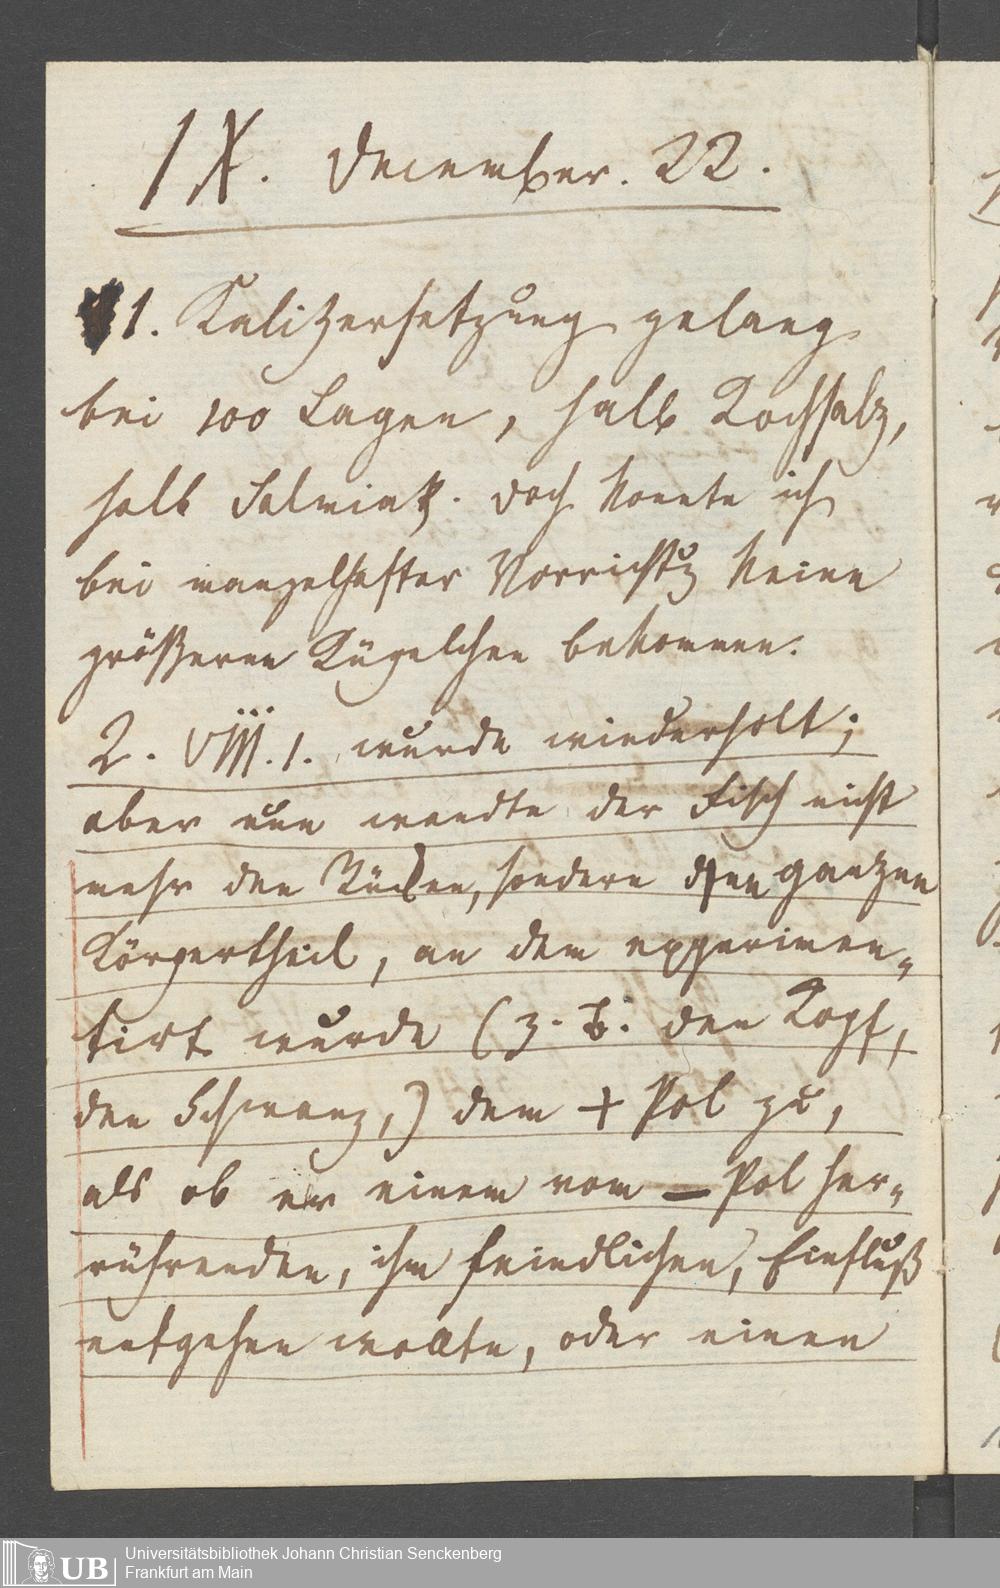 IX. December. 22.
1. Kalizersetzung gelang
bei 100 Lagen, halb Kochsalz,
halb Salmiak. Doch konnte ich
bei mangelhafter Vorrichtug keine
größeren Kügelchen bekommen.
2. VIII.1. wurde wiederholt;
aber nun wandte der Fisch nicht
mehr den Rücken, sondern den ganzen
Körpertheil, an dem experimen-
tirt wurde (z. B. den Kopf,
den Schwanz,) dem + Pol zu,
als ob er einem vom – Pol her-
rührenden, ihm feindlichen, Einfluß
entgehen wollte, oder einen
UB
Universitätsbibliothek Johann Christian Senckenberg
Frankfurt am Main